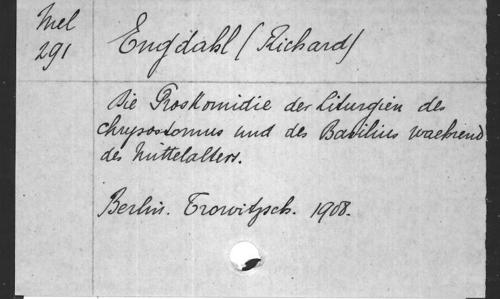 Mel
291
Engdahl (Richard)
Die Proskomidie der Liturgien des
Chrysostomus und des Basilius waehrend
des Mittelalters.
Berlin. Trowitzsch. 1908.